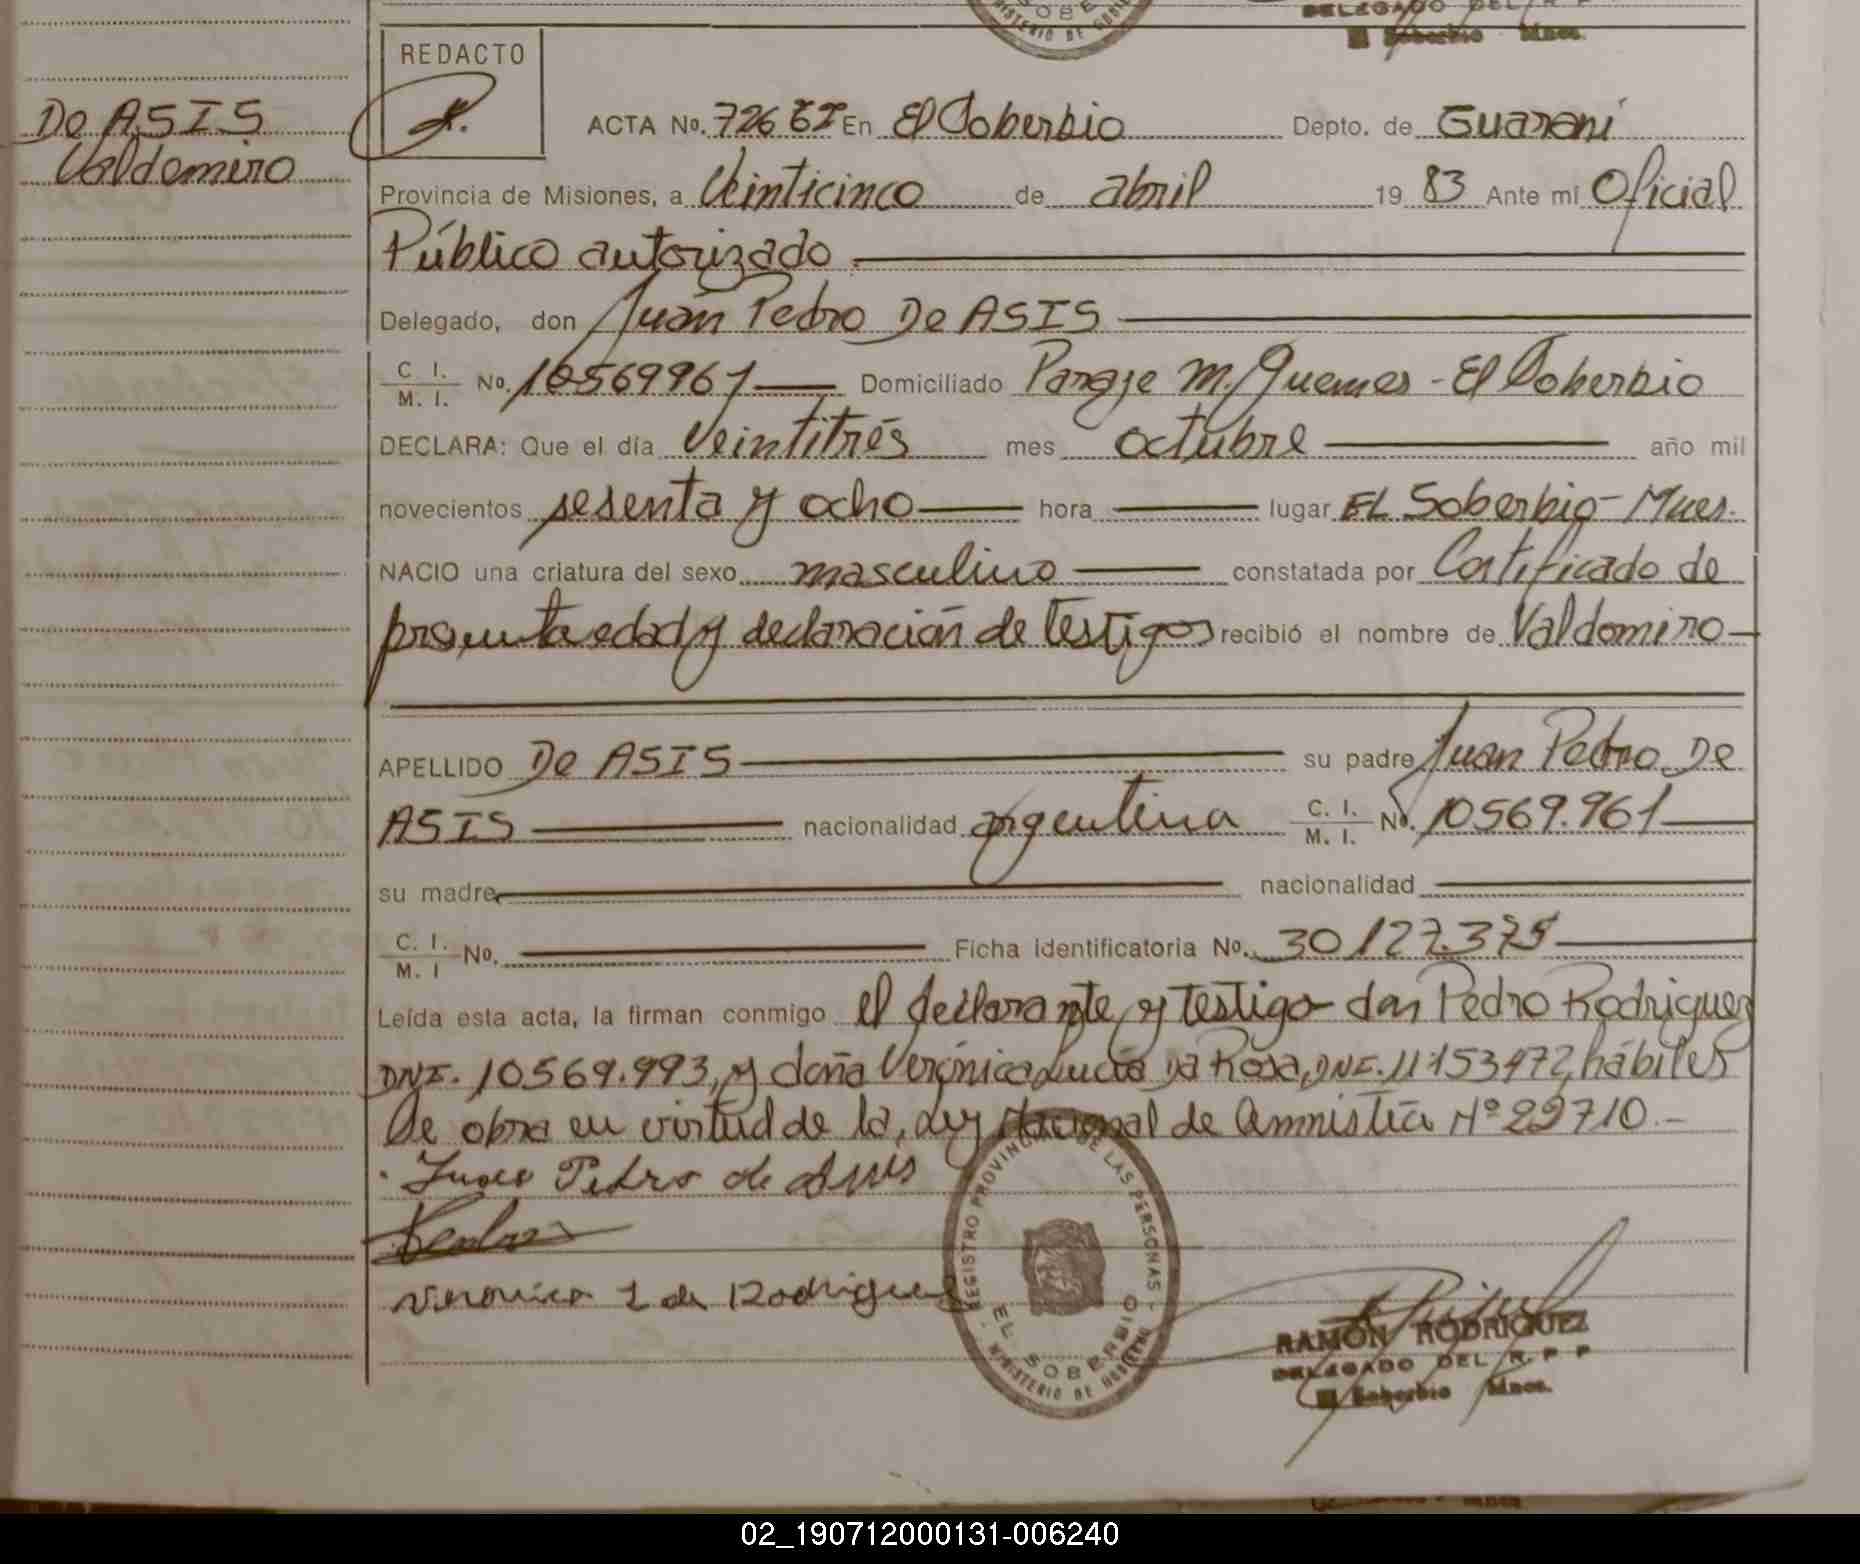 DELEGADO DEL R P P
El Soberbio Mnes.
SOBE
MINISTERIO DE GOBIE
REDACTO
De ASIS
Valdomiro
ACTA No. 726 En El Soberbio Depto. de Guaraní
Provincia de Misiones, a Veinticinco de abril 19 83 Ante mi Oficial
Público autorizado
Delegado, don Juan Pedro De ASIS
C. I. M. I. No. 10569961 Domiciliado Paraje M. Guemes - El Soberbio
DECLARA: Que el día Veintitrés mes octubre año mil
novecientos sesenta y ocho hora lugar EL Soberbio - Mnes.
NACIO una criatura del sexo masculino constatada por Certificado de
presunta edad y declaración de testigos recibió el nombre de Valdomiro
APELLIDO De ASIS su padre Juan Pedro De
ASIS nacionalidad argentina C. I. M. I. No. 10569.961
su madre nacionalidad
C. I. M. I No. Ficha identificatoria No. 30127.375
Leída esta acta, la firman conmigo el declarante y testigo don Pedro Rodriguez
DNI. 10569.993, y doña Verónica Lucía Da Rosa, DNI. 11153472, hábiles
Se obra en virtud de la Ley Nacional de Amnistía Nº 22710.-
Juan Pedro de Asis
Veronica L de Rodriguez
REGISTRO PROVINCIAL DE LAS PERSONAS
EL SOBERBIO
MINISTERIO DE GOBIERNO
RAMON RODRIGUEZ
DELEGADO DEL R. P P
El Soberbio Mnes.
02_190712000131-006240